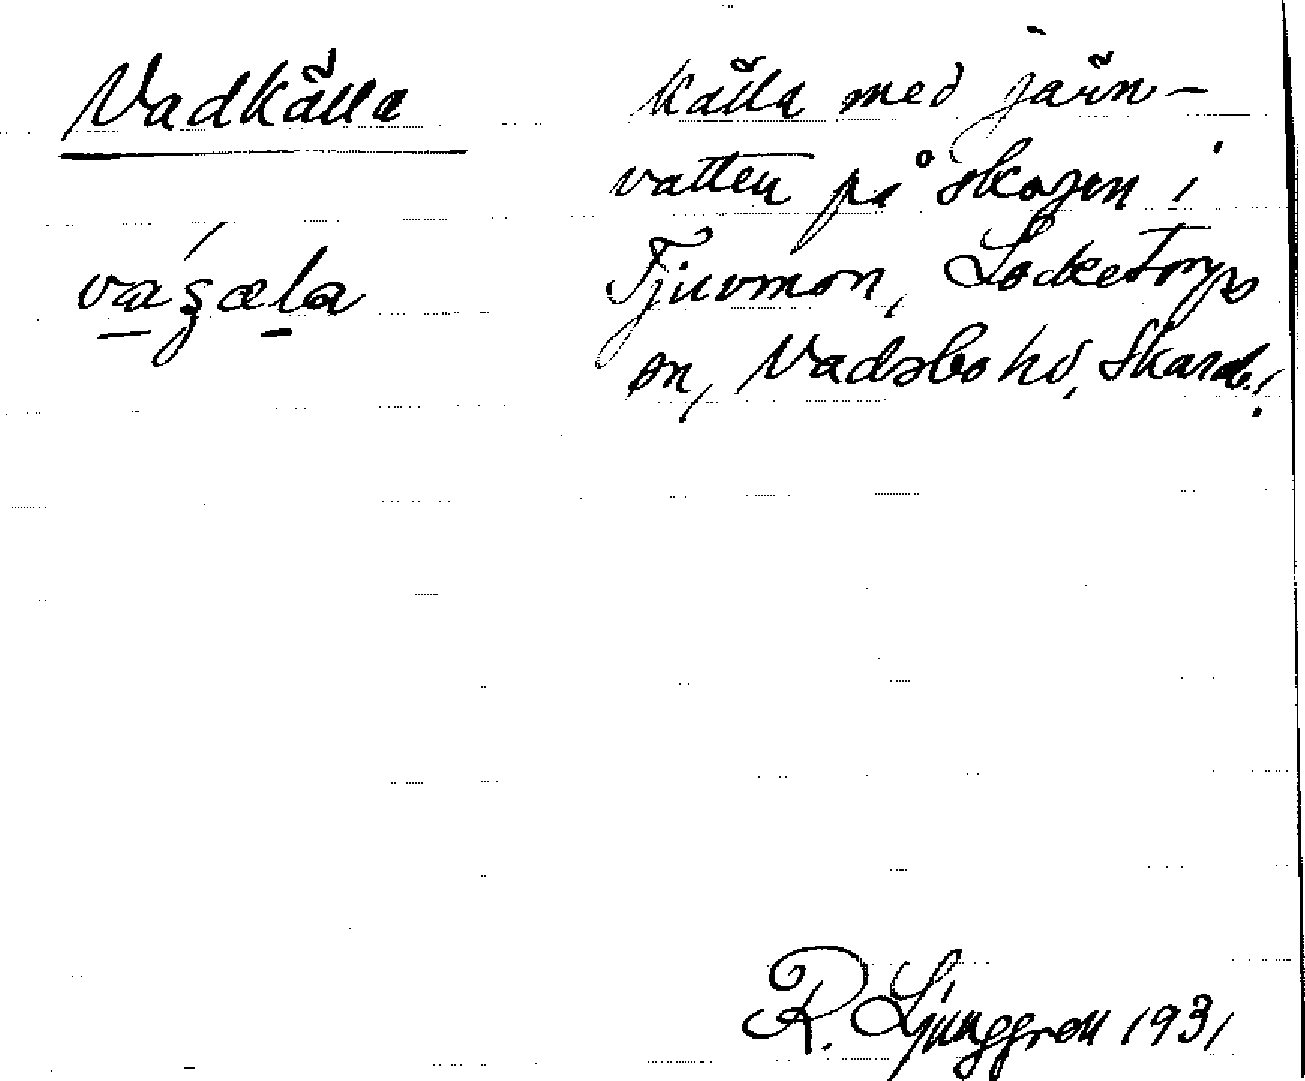 Vadkälla
källa med järn-
vatten på skogen i
Tjuvmon, Locketorps
sn, Vadsbo hd, Skarab.l.
R. Ljunggren 1931